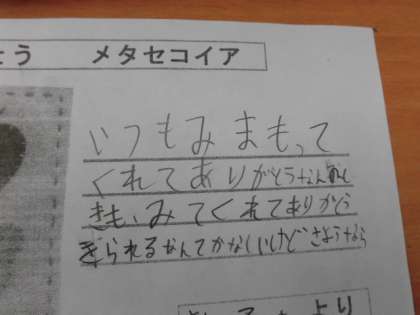 とう　メタセコイア
いつもみまもって
くれてありがとうなんねん
きもいみてくれてありがとう
ぎられるなんてかなしいけどさようなら
より